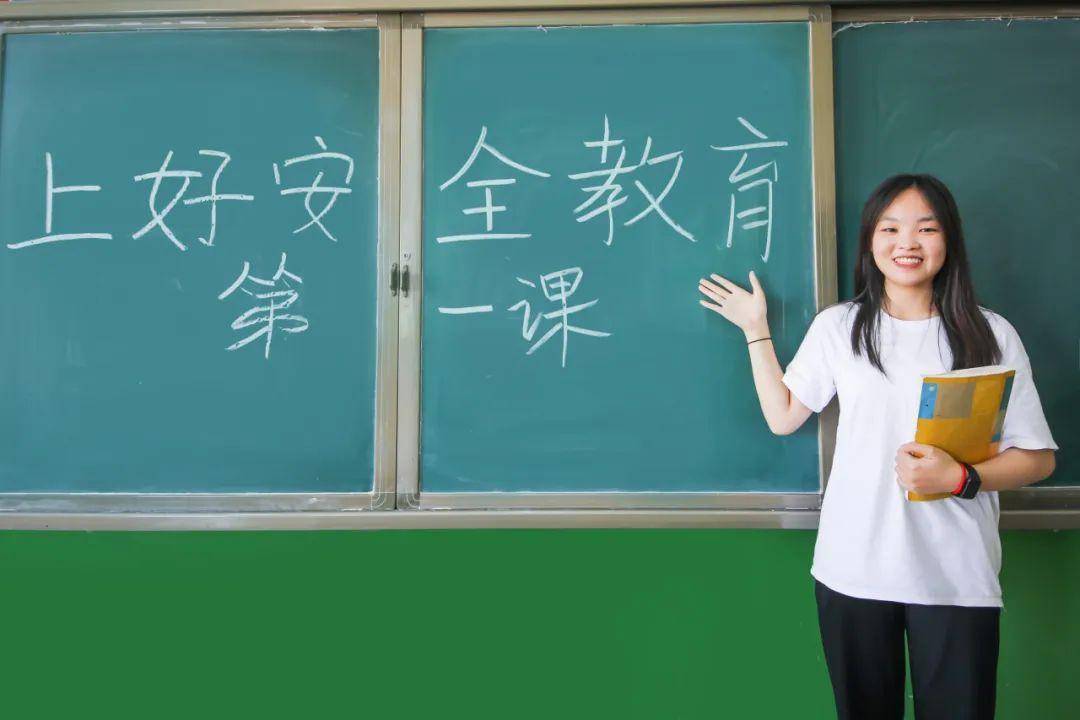 上好安全教育
第一课